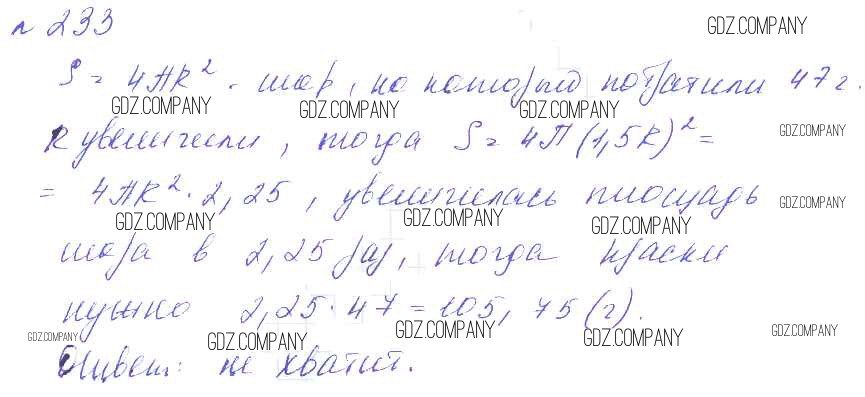 № 233 GDZ.COMPANY
S = 4ПR². шар, на который потратили 47 г.
GDZ.COMPANY GDZ.COMPANY GDZ.COMPANY GDZ.COMPANY
R увеличили, тогда S = 4П(1,5R)² =
= 4ПR² · 2,25, увеличилась площадь GDZ.COMPANY
GDZ.COMPANY GDZ.COMPANY GDZ.COMPANY
шара в 2,25 раз, тогда краски
нужно 2,25 · 47 = 105,75 (г).
GDZ.COMPANY GDZ.COMPANY GDZ.COMPANY GDZ.COMPANY GDZ.COMPANY
Ответ: не хватит.